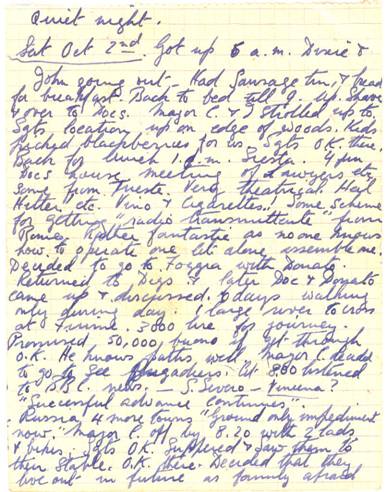 Quiet night.
Sat Oct 2nd. Got up 5 a.m. Dixie &
John going out - Had Sausage tin, & bread
for breakfast. Back to bed till 9. up. Shave
& over to Docs. Major C. & I strolled up to
Sgts location up on edge of woods. Kids
picked blackberries for us Sgts OK there.
Back for lunch 1. p.m. Siesta. 4 pm
Docs house meeting of Lawyers etc
some from Trieste. Very theatrical Heil
Hitler etc. Vino & Cigarettes! Some scheme
for getting "radio transmittente" from
Rome, Rather fantastic as no one knows
how to operate one let alone assemble one.
Decided to go to Foggia with Donato
Returned to Digs & later Doc & Donato
came up & discussed. 6 days walking
only during day. 1 large river to cross
at 3000 lire for journey.
Promised 50,000 buono if get through
O.K. He knows paths well. Major C. decided
to go to see Brigadiers. At 8.00 listened
to BBC news, - S. Severo -
"Successful advance continues".
Russia 4 more towns "Ground only impediment
now." Major C. off by 8.20 with 2 lads
& bikes. Sgts OK. Suppered & saw them to
their Stable. O.K. there. Decided that they
live out in future as family afraid